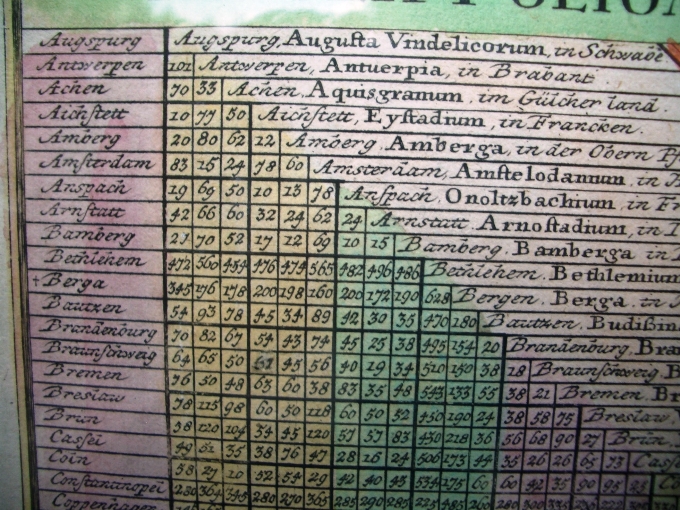 Augspurg Augspurg, Augusta Vindelicorum, in Schwabē
Antwerpen 101 Antwerpen, Antuerpia, in Brabant.
Achen 70 33 Achen, Aquisgranum, im Gülcher land.
Aichstett 10 77 50 Aichstett, Eystadium, in Francken.
Amberg 20 80 62 12 Amberg, Amberga, in der Obern
Amsterdam 83 15 24 78 60 Amsterdam, Amstelodamum, in
Anspach 19 69 50 10 13 78 Anspach, Onoltzbachium, in Fr
Arnstatt 42 66 60 32 24 62 24 Arnstatt, Arnostadium, in
Bamberg 21 70 52 17 12 69 10 15 Bamberg, Bamberga in
Bethlehem 472 560 454 476 474 565 482 496 486 Bethlehem, Bethlemium
Berga 345 176 178 200 198 160 200 172 190 628 Bergen, Berga, in
Bautzen 54 93 78 45 34 89 42 30 35 470 180 Bautzen, Budißin
Brandenburg 70 82 67 54 43 74 45 25 38 495 154 20 Brandenburg, Bra
Braunschweig 64 65 50 45 56 40 19 34 510 150 38 18 Braunschweig, B
Bremen 76 50 48 63 60 38 83 35 48 543 133 55 38 21 Bremen, Br
Breslaw 78 115 98 60 50 118 60 50 52 450 190 24 38 58 75 Breslaw,
Brün 58 120 104 54 45 120 57 57 83 430 218 36 56 68 90 27 Brün,
Cassel 49 51 35 38 76 47 28 16 24 506 173 44 35 26 26 65 73
Cöln 58 27 10 52 54 29 42 40 43 534 175 60 60 42 35 90 95
Constantinopel 280 364 345 280 270 365 285 290 285 225 485 260
Coppenhagen